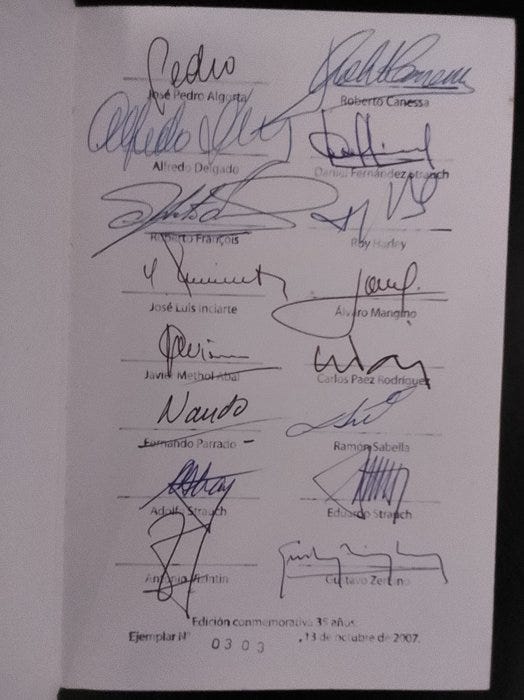 Pedro
José Pedro Algorta
Roberto Canessa
Alfredo
Alfredo Delgado
Daniel Fernández Strauch
Roberto François
Roy Harley
José Luis Inciarte
Álvaro Mangino
Javier Methol Abal
Carlos Paez Rodríguez
Nando
Fernando Parrado
Ramón Sabella
Adolfo Strauch
Eduardo Strauch
Antonio Vizintín
Gustavo Zerbino
Edición conmemorativa 35 años.
Ejemplar N° 0303 , 13 de octubre de 2007.